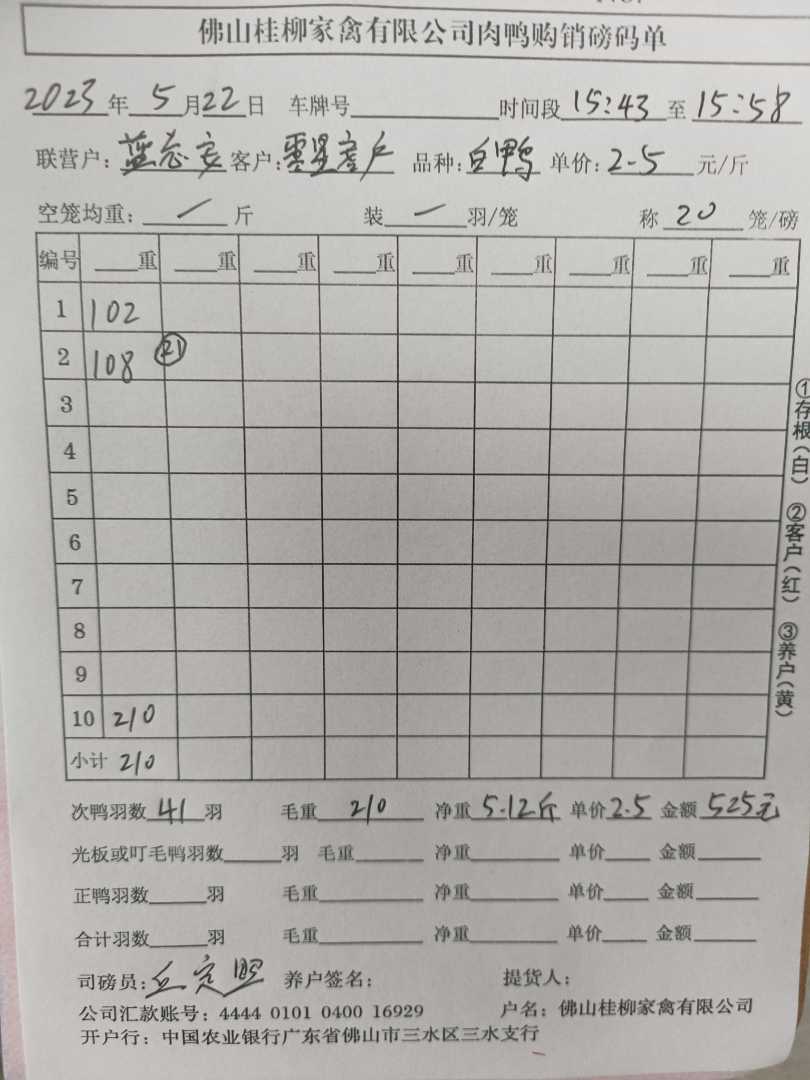 佛山桂柳家禽有限公司肉鸭购销磅码单
2023年5月22日 车牌号 时间段15:43至15:58
联营户: 客户: 品种:白鸭 单价:2-5元/斤
空笼均重:/斤 装一羽/笼 称20笼/磅
编号 重 重 重 重 重 重 重 重 重
1 102
2 108 21
3
4
5
6
7
8
9
10 210
小计 210
次鸭羽数41羽 毛重210 净重5.12斤 单价2.5 金额525元
光板或叮毛鸭羽数 羽 毛重 净重 单价 金额
正鸭羽数 羽 毛重 净重 单价 金额
合计羽数 羽 毛重 净重 单价 金额
司磅员: 养户签名: 提货人:
公司汇款账号:4444 0101 0400 16929 户名:佛山桂柳家禽有限公司
开户行:中国农业银行广东省佛山市三水区三水支行
①存根(白) ②客户(红) ③养户(黄)